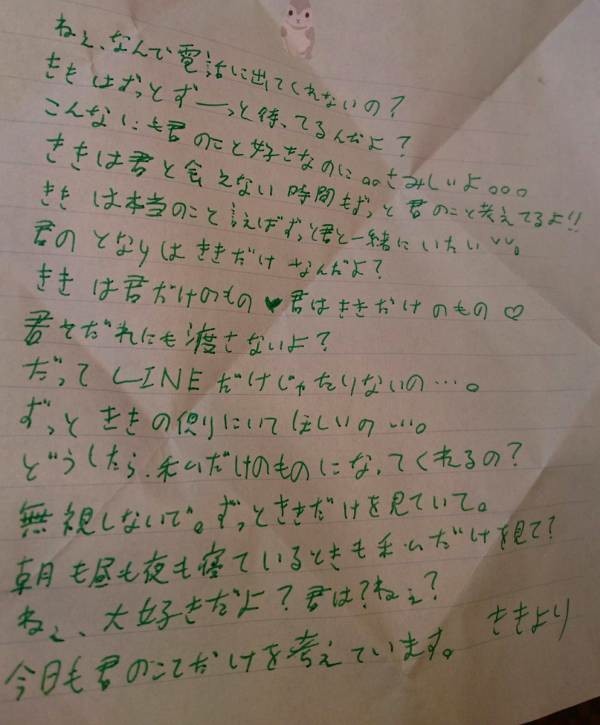 ねぇ、なんで電話に出てくれないの?
ききはずっとずーっと待ってるんだよ?
こんなにも君のこと好きなのに。。さみしいよ。。。
ききは君と会えない時間もずっと君のこと考えてるよ!!
ききは本当のこと言えばずっと君と一緒にいたい、、。
君のとなりはききだけなんだよ?
ききは君だけのもの♥君はききだけのもの♡
君をだれにも渡さないよ?
だってLINEだけじゃたりないの…。
ずっとききの側りにいてほしいの…。
どうしたら、私だけのものになってくれるの?
無視しないで。ずっとききだけを見ていて。
朝も昼も夜も寝ているときも私だけを見て?
ねぇ、大好きだよ?君は?ねぇ?
今日も君のことだけを考えています。 ききより